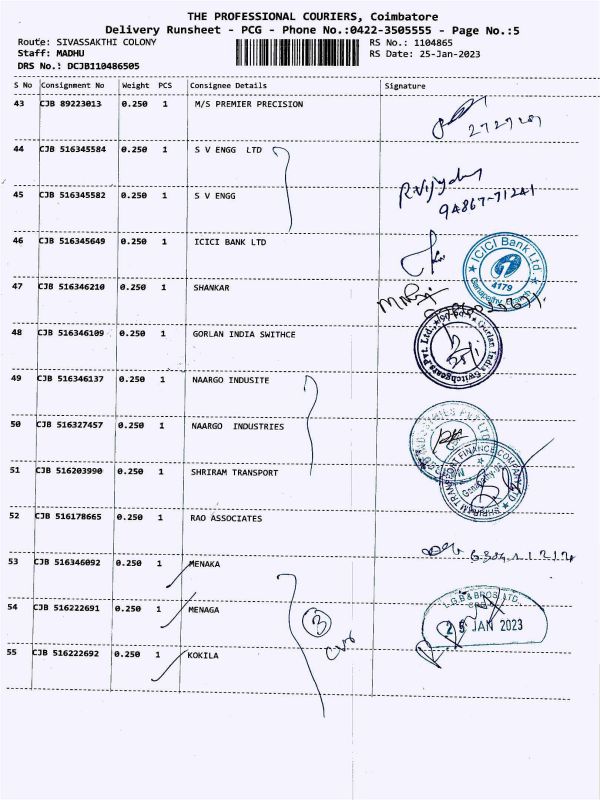 THE PROFESSIONAL COURIERS, Coimbatore
Delivery Runsheet - PCG - Phone No.:0422-3505555 - Page No.:5
Route: SIVASSAKTHI COLONY RS No.: 1104865
Staff: MADHU RS Date: 25-Jan-2023
DRS No.: DCJB110486505
S No Consignment No Weight PCS Consignee Details Signature
43 CJB 89223013 0.250 1 M/S PREMIER PRECISION
44 CJB 516345584 0.250 1 S V ENGG LTD
45 CJB 516345582 0.250 1 S V ENGG
94867-71241
46 CJB 516345649 0.250 1 ICICI BANK LTD
ICICI Bank Ltd.
4179
47 CJB 516346210 0.250 1 SHANKAR
48 CJB 516346109 0.250 1 GORLAN INDIA SWITHCE
Gorlan India Switchgears Pvt. Ltd.
49 CJB 516346137 0.250 1 NAARGO INDUSITE
50 CJB 516327457 0.250 1 NAARGO INDUSTRIES
INDUSTRIES PVT LTD
51 CJB 516203990 0.250 1 SHRIRAM TRANSPORT
SHRIRAM TRANSPORT FINANCE COMPANY LTD
52 CJB 516178665 0.250 1 RAO ASSOCIATES
53 CJB 516346092 0.250 1 MENAKA
54 CJB 516222691 0.250 1 MENAGA
3
L.G.B & BROS. LTD.
25 JAN 2023
55 CJB 516222692 0.250 1 KOKILA